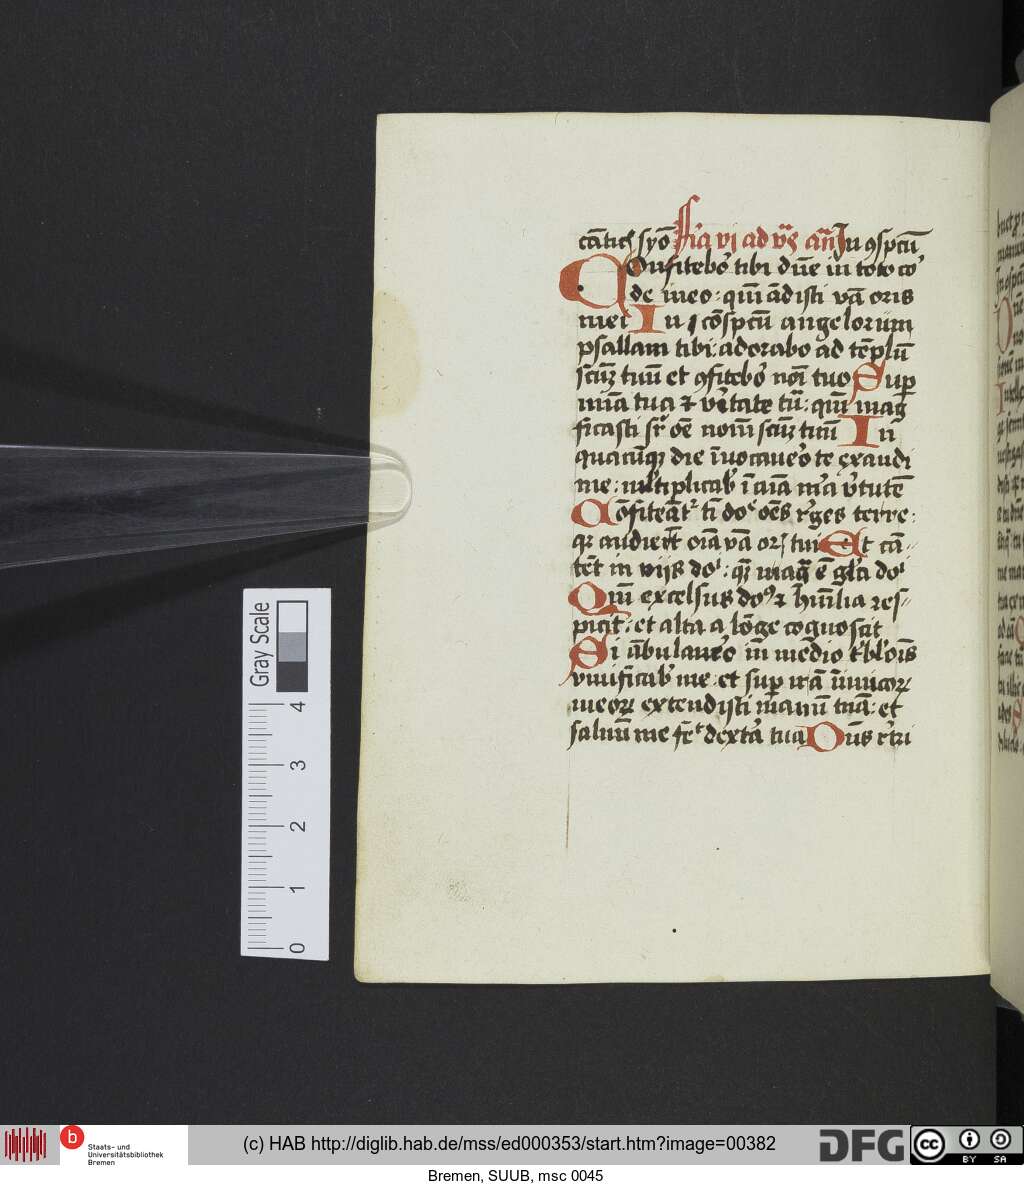 cāticꝭ syō F͛ia vj ad vꝭ añ In ꝯspcū
Confitebo͛ tibi dn̄e in toto co͛
de meo : qm̄ ādisti v̄ā oris
mei In cōspcū angelorum
psallam tibi : adorabo ad tēplū
scm̄ tuū et ꝯfitebo͛ noi̅ tuo Sup
mi̅a tua ⁊ v͛itate tū : qm̄ mag̅
ficasti sr͛ oē nom̄ scm̄ tuū In̄
quacūqꝫ die īuocaue͛o te exaudi
me : mltiplicab͛ ī aīa m͛a v͛tutē
Cōfiteāt͛ t̄i do͛ oēs r͛ges terre :
qꝛ audiert̄ oīa v͛ā orꝭ tui Et cā-
tēt in vijs do͛ : qm̄ mag̅ ē gl̅a do͛
Qm̄ excelsus doꝰ ⁊ hūi̅lia res-
picit : et alta a lōge cognoscit
Si ābulaue͛o in̄ medio t͛bl͛ois̅
viuificab͛ me : et sup irā inimicoꝝ
meoꝝ extendisti manū tuā : et
saluū me fe͛ dext͛a tua Dn̄s r͛tri
Gray Scale
0 1 2 3 4
b Staats- und
Universitätsbibliothek
Bremen
(c) HAB http://diglib.hab.de/mss/ed000353/start.htm?image=00382
DFG
cc BY SA
Bremen, SUUB, msc 0045